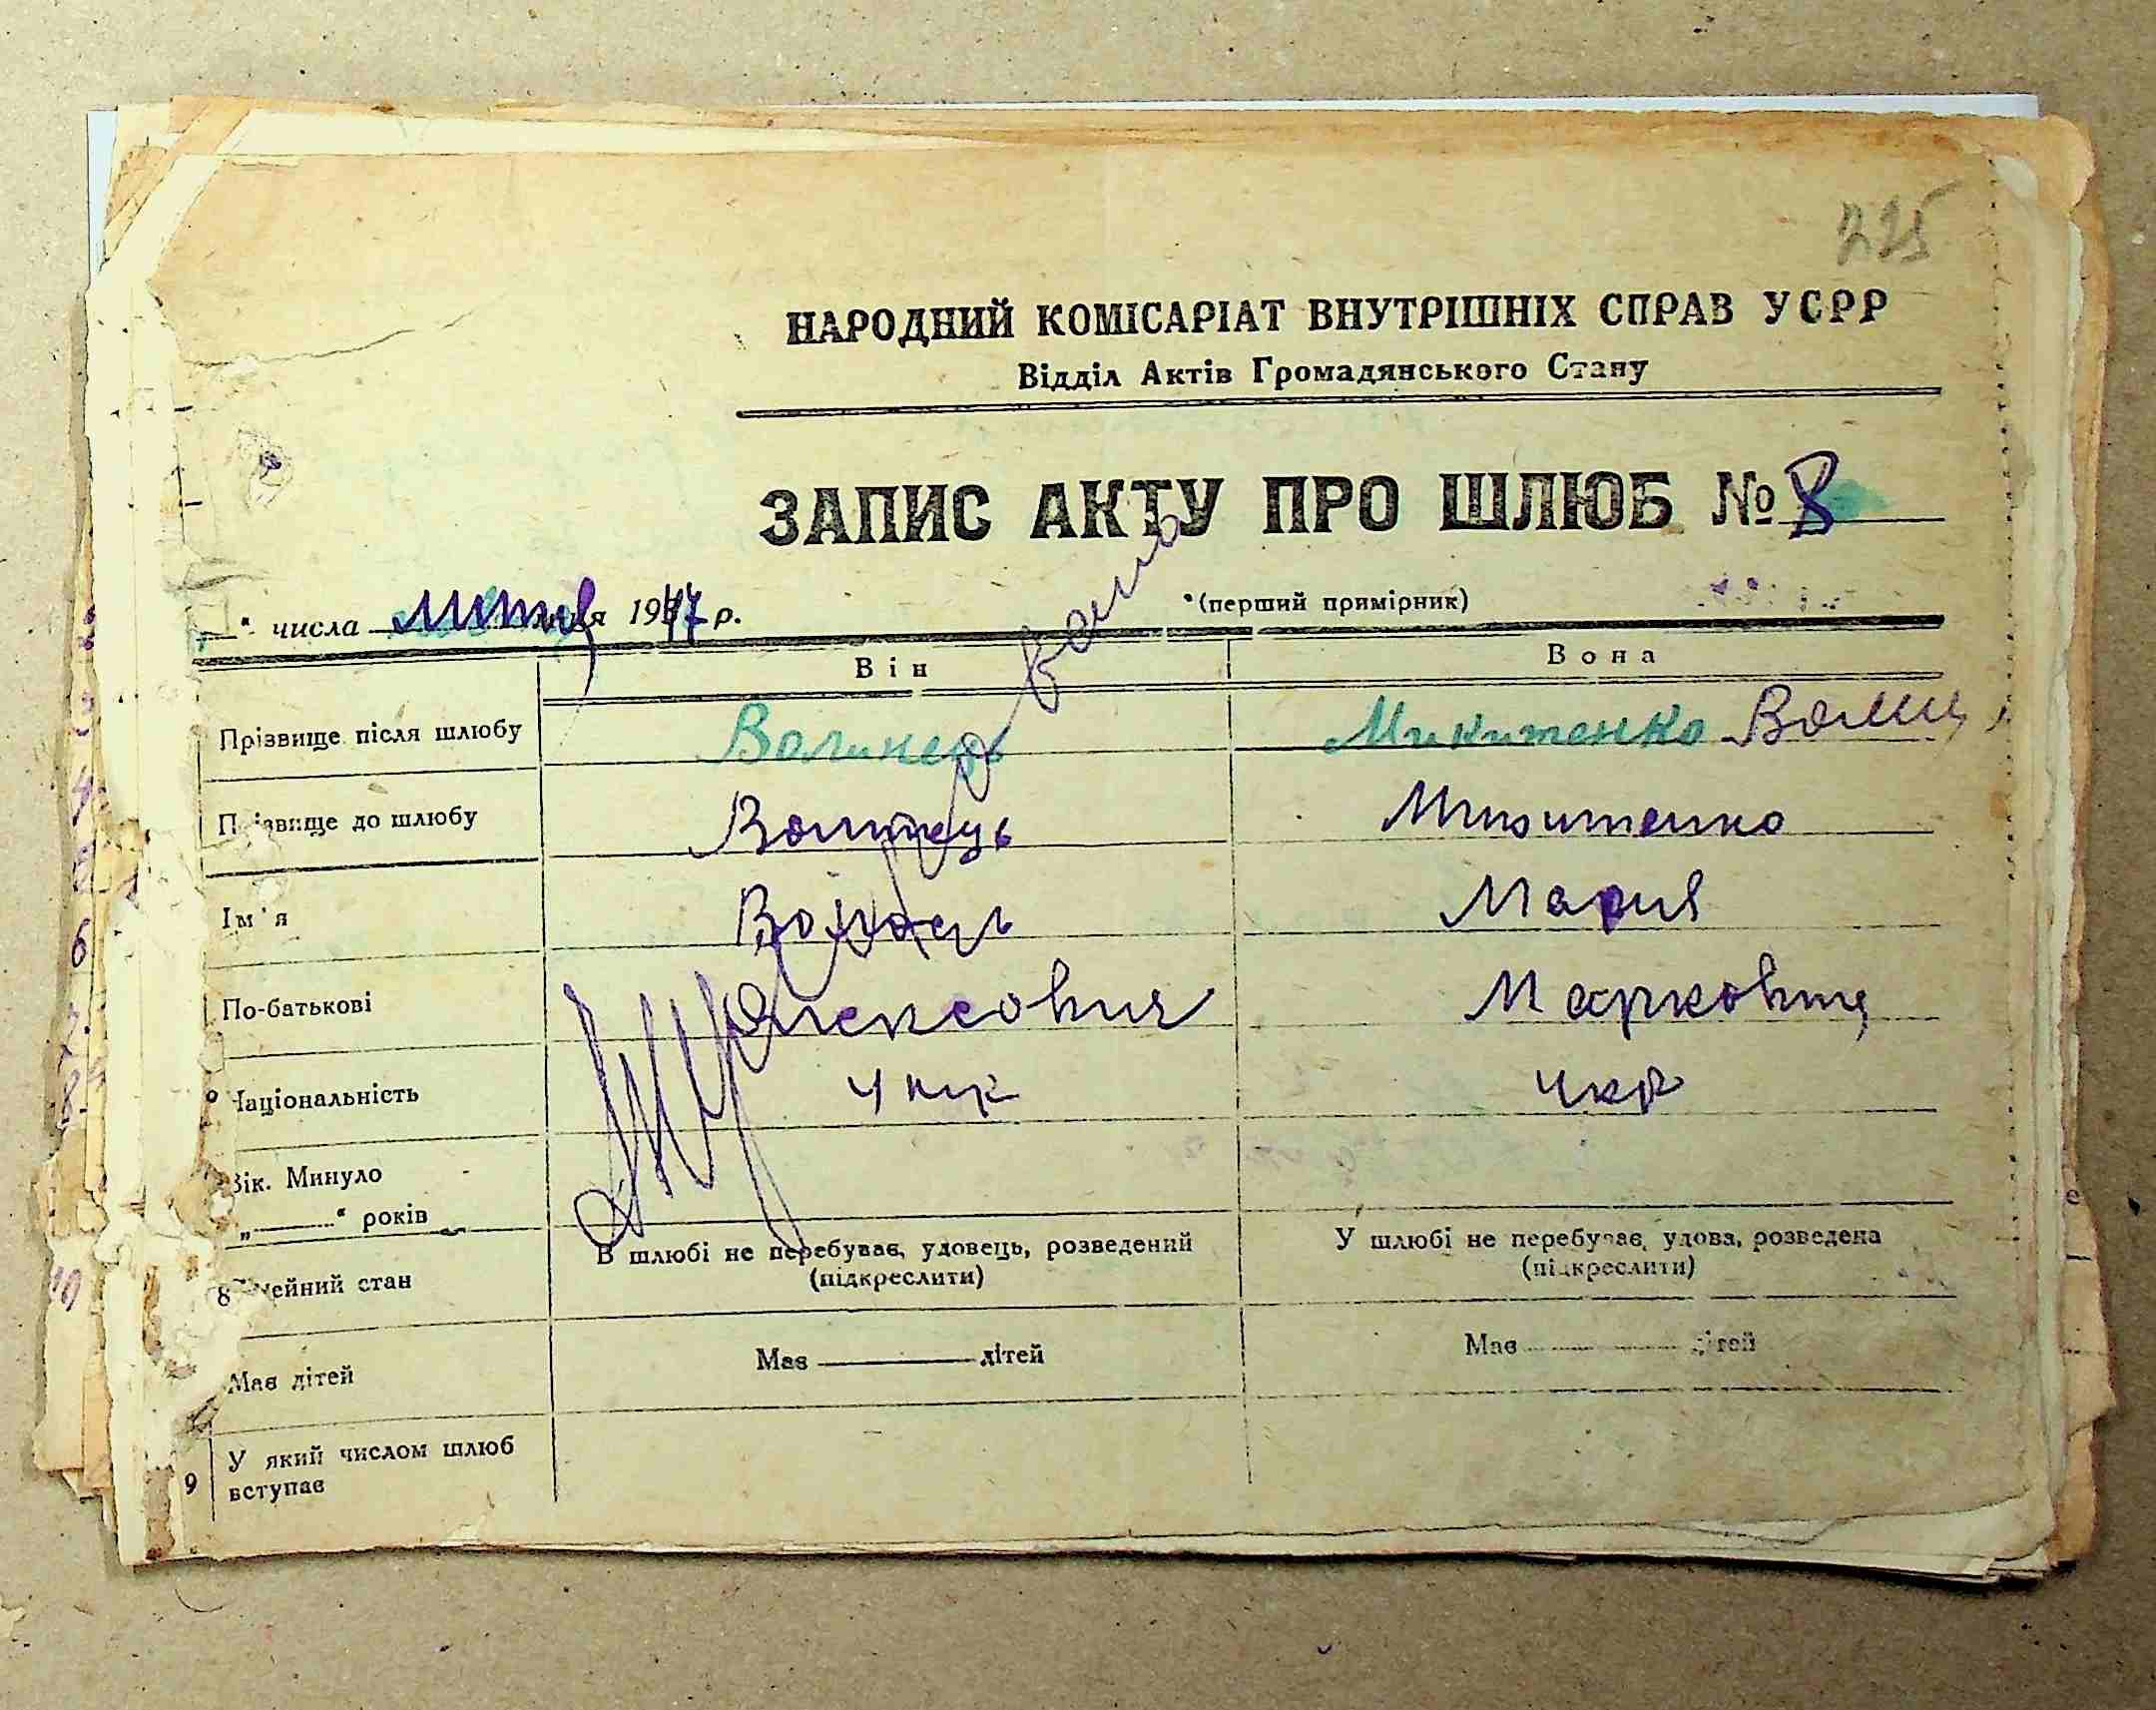 225
НАРОДНИЙ КОМІСАРІАТ ВНУТРІШНІХ СПРАВ УСРР
Відділ Актів Громадянського Стану
ЗАПИС АКТУ ПРО ШЛЮБ № 8
" числа 1947 р. (перший примірник)
Він Вона
Прізвище після шлюбу Волинець Микитенко
Прізвище до шлюбу Волинець Микитенко
Ім'я Мария
По-батькові Олексович Марковна
Національність укр укр
Вік. Минуло
„ “ років
В шлюбі не перебуває, удовець, розведений (підкреслити) У шлюбі не перебуває, удова, розведена (підкреслити)
8 мейний стан
Має дітей Має дітей Має дітей
9 У який числом шлюб вступає